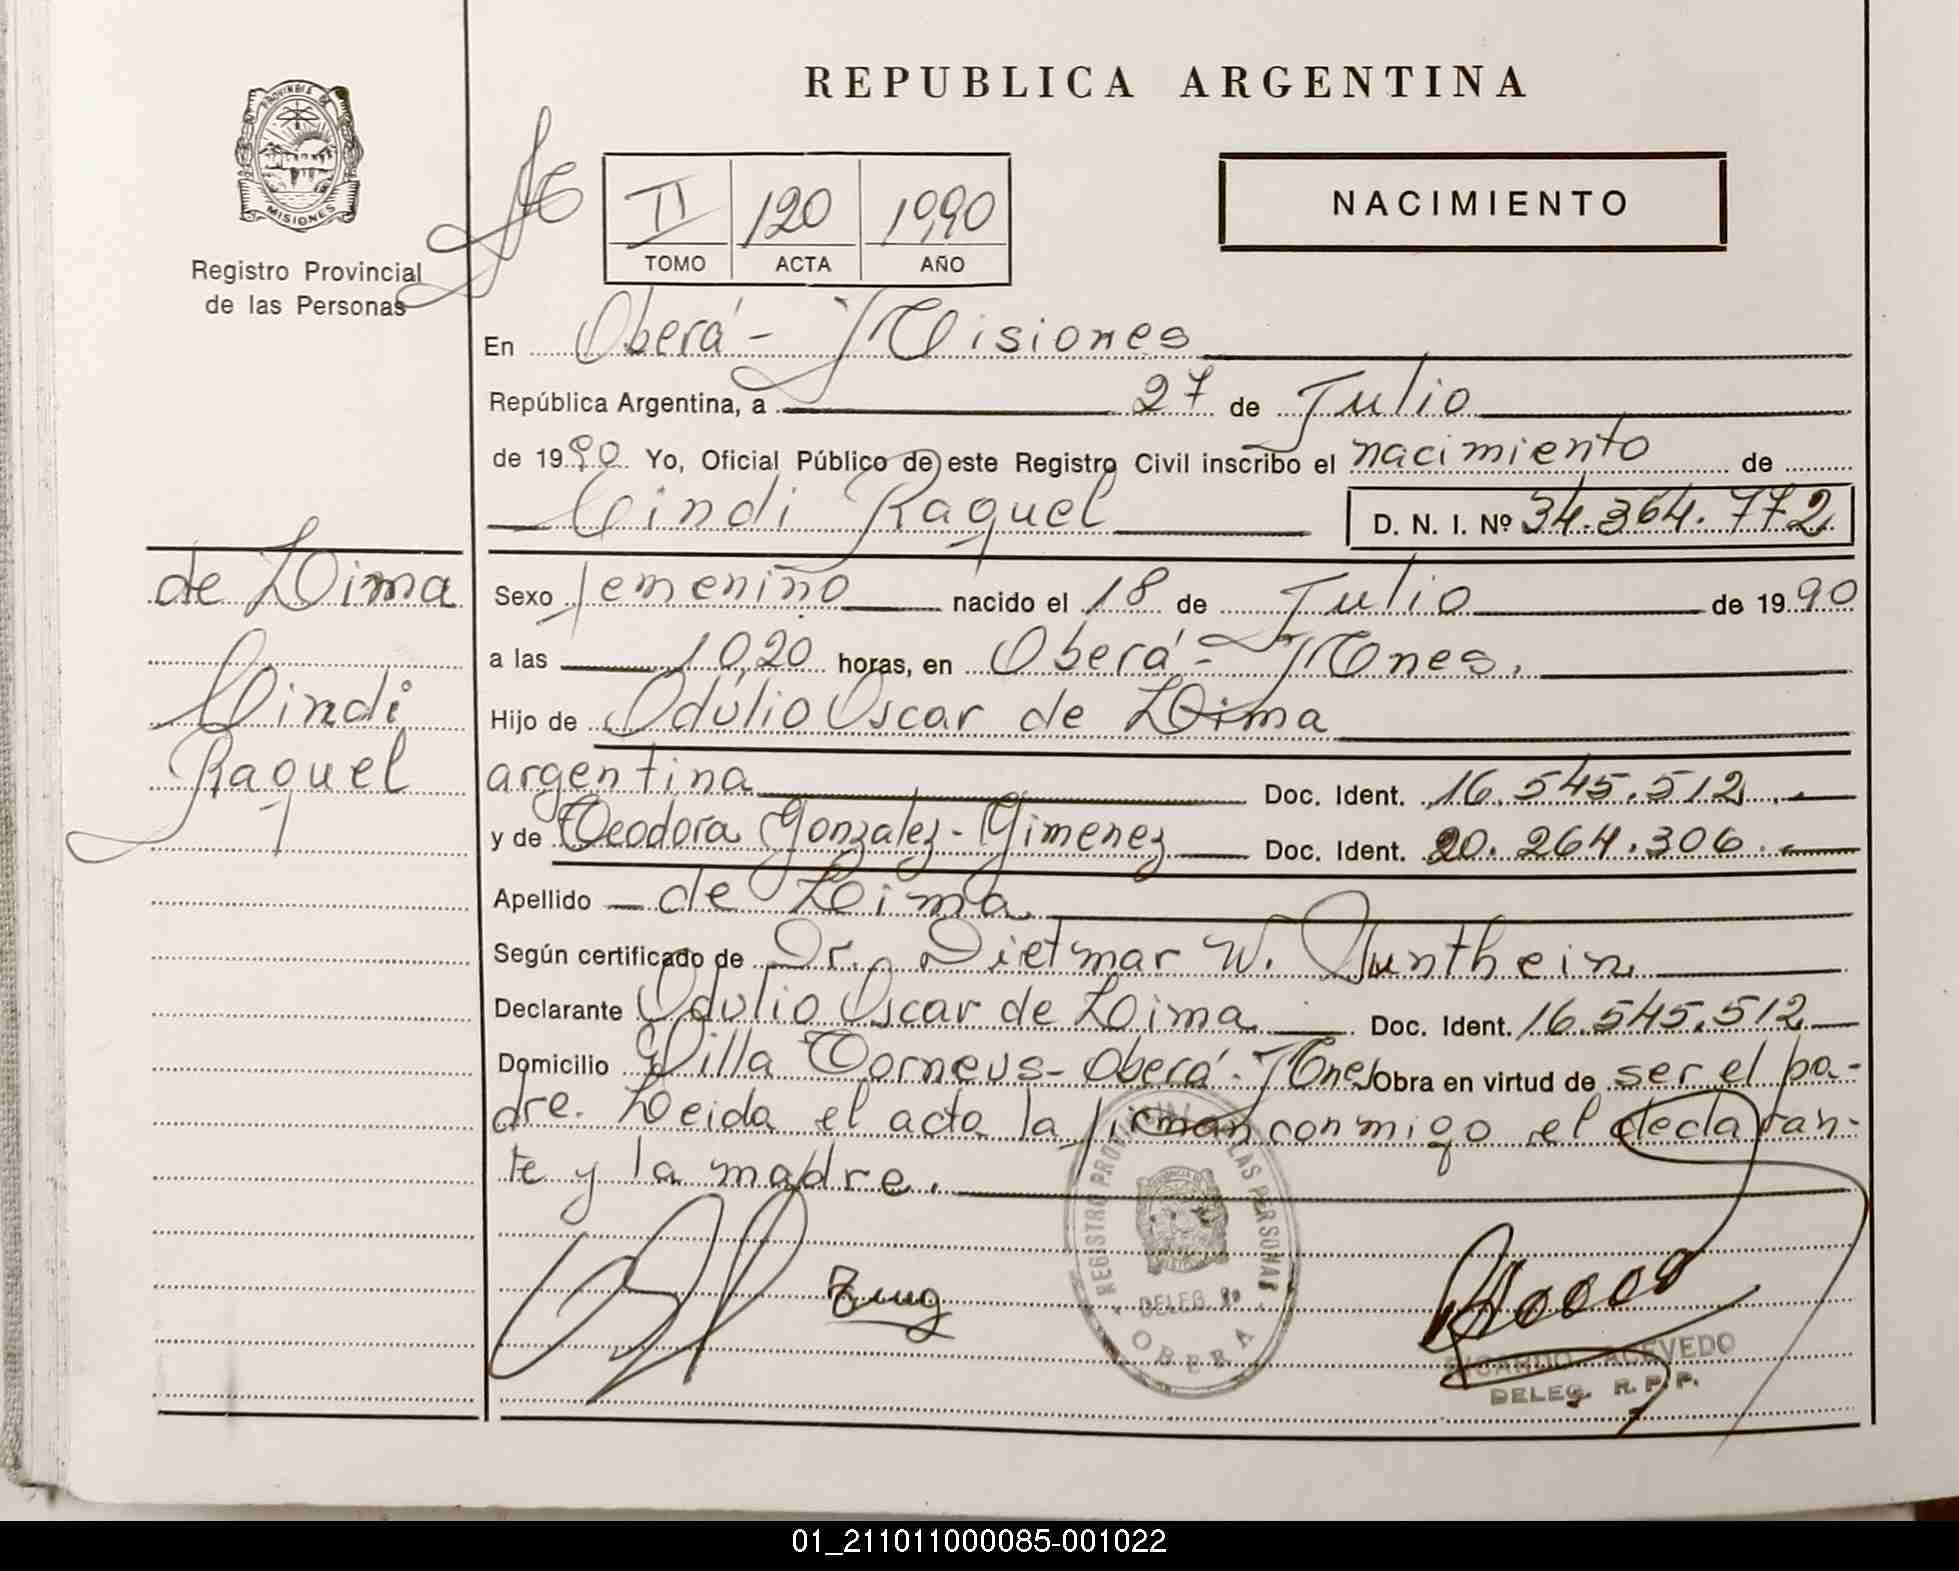 REPUBLICA ARGENTINA
PROVINCIA DE
MISIONES
Registro Provincial
de las Personas
II 120 1990
TOMO ACTA AÑO
NACIMIENTO
En Oberá - Misiones
República Argentina, a 27 de Julio
de 1990 Yo, Oficial Público de este Registro Civil inscribo el nacimiento de
Cindi Raquel D. N. I. Nº 34.364.772
de Lima
Cindi
Raquel
Sexo femenino nacido el 18 de Julio de 1990
a las 10,20 horas, en Oberá - Mnes.
Hijo de Odulio Oscar de Lima
argentina Doc. Ident. 16.545.512.
y de Teodora Gonzalez - Gimenez Doc. Ident. 20.264.306.
Apellido de Lima
Según certificado de Dr. Dietmar W.
Declarante Odulio Oscar de Lima Doc. Ident. 16.545.512
Domicilio Villa Torneus - Oberá - Mnes Obra en virtud de ser el pa-
dre. Leida el acta la firman conmigo el declaran-
te y la madre.
REGISTRO PROVINCIAL DE LAS PERSONAS
DELEG.
OBERA
RICARDO ACEVEDO
DELEG. R. P. P.
01_211011000085-001022